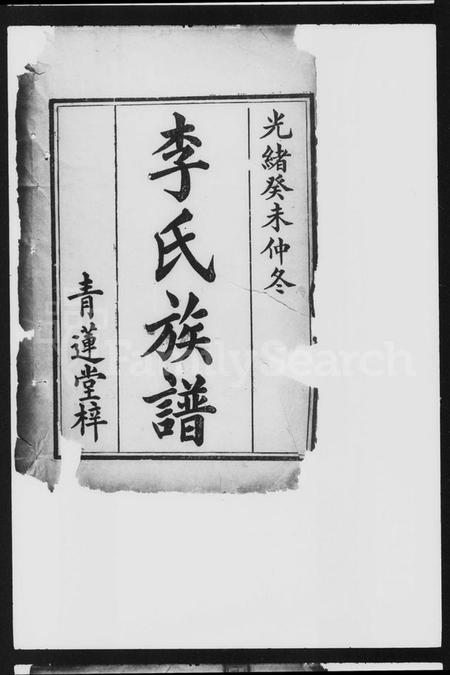 光緒癸未仲冬
李氏族譜
青蓮堂梓
FamilySearch